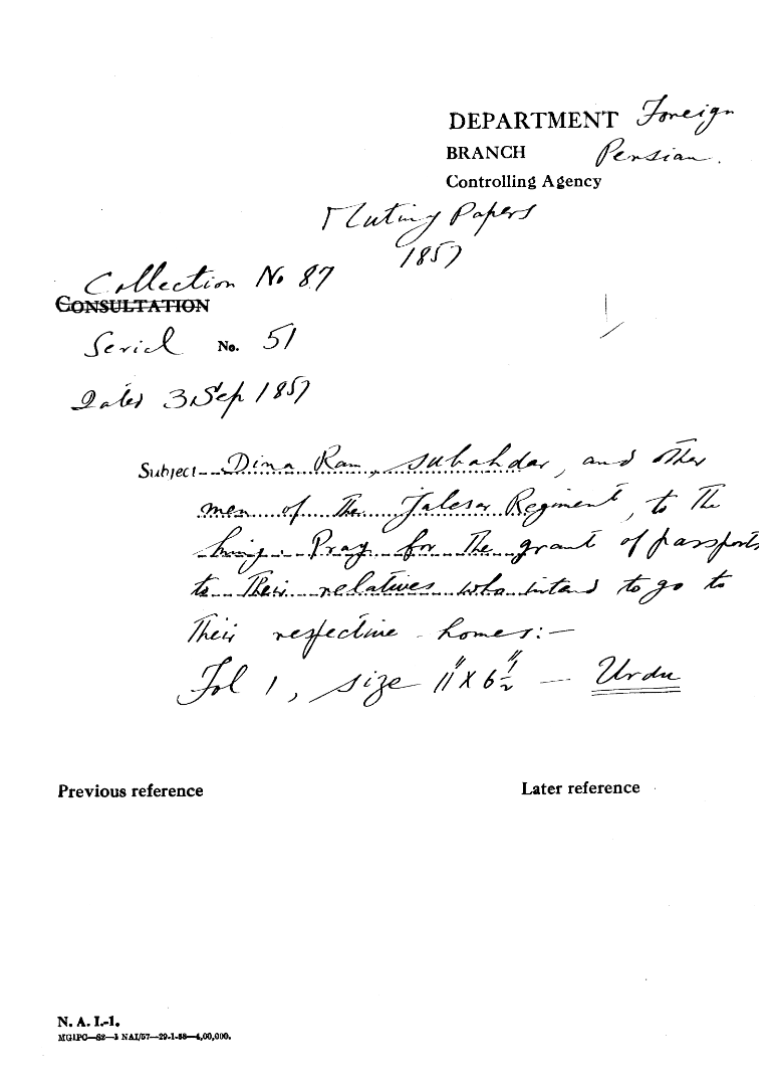 DEPARTMENT Foreign
BRANCH Persian.
Controlling Agency
Mutiny Papers
1857
Collection No 87
CONSULTATION
Serial No. 51
Dated 3 Sep 1857
Subject Dina Ram, subahdar, and other
men of the Jalesar Regiment, to the
king. Pray for the grant of passports
to their relatives who intend to go to
their respective homes:—
Fol 1, size 11" X 6 1/2" — Urdu
Previous reference
Later reference
N. A. I.-1.
MGIPC—S2—3 NAI/57—29-1-58—4,00,000.